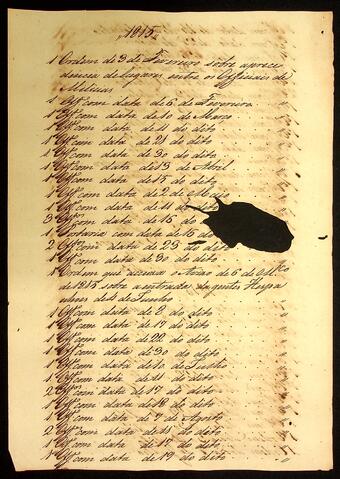 1815
1 Ordem de 3 de Fevereiro sobre a prece
dencia de lugares entre os Officiaes de
Milicias
1 Offo com data de 6 de Fevereiro
1 Offo com data de 10 de Março
1 Offo com data de 11 do dito
1 Offo com data de 21 do dito
1 Offo com data de 30 do dito
1 Offo com data de 13 de Abril
1 Offo com data de 15 do dito
1 Offo com data de 2 de Maio
1 Offo com data de 11 do dito
3 Offo com data de 15 do
1 Portaria com data de 15 do
2 Offo com data de 23 do dito
1 Offo com data de 30 do dito
1 Ordem que acusa o Avizo de 6 de
de 1815 sobre a entrada da gente Hespa
nhoes de 4 de Junho
1 Offo com data de 2 do dito
1 Offo com data de 17 do dito
1 Offo com data de 22 do dito
1 Offo com data de 30 do dito
1 Offo com data de 10 de Julho
1 Offo com data de 11 do dito
2 Offo com data de 17 do dito
1 Offo com data de 18 do dito
2 Offo com data de 7 de Agosto
2 Offo com data de 11 do dito
1 Offo com data de 17 do dito
1 Offo com data de 19 do dito